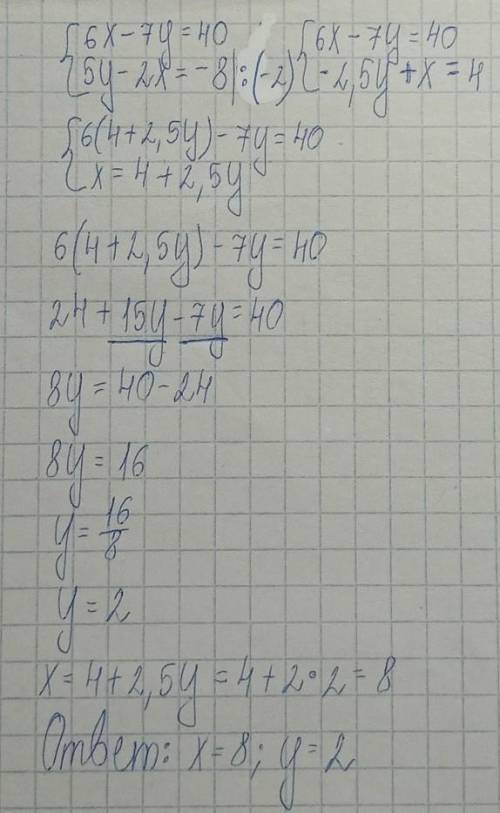 {6x-7y=40 {6x-7y=40
{5y-2x=-8|:(-2) {-2,5y+x=4
{6(4+2,5y)-7y=40
{x=4+2,5y
6(4+2,5y)-7y=40
24+15y-7y=40
8y=40-24
8y=16
y=16/8
y=2
x=4+2,5y=4+2·2=8
Ответ: x=8; y=2